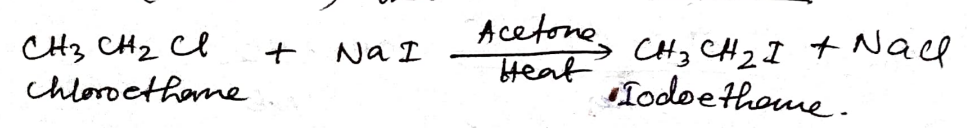 CH3 CH2 Cl + NaI Acetone Heat → CH3 CH2 I + NaCl
Chloroethane Iodoethane.